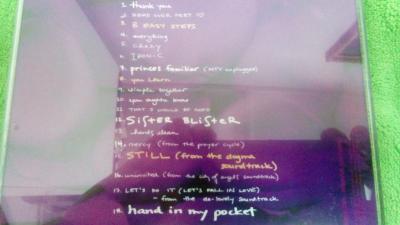 1. thank you
2. HEAD OVER FEET ☺
3. 8 EASY STEPS
4. everything
5. crazy
6. IRONIC
7. princes familiar (MTV unplugged)
8. you learn
9. simple together
10. you oughta know
11. THAT I WOULD BE GOOD
12. SiSTER BLiSTER
13. hands clean
14. mercy (from the prayer cycle)
15. STILL (from the dogma
soundtrack)
16. uninvited (from the city of angels soundtrack)
17. LET'S DO IT (LET'S FALL IN LOVE)
- from the de-lovely soundtrack
18. hand in my pocket